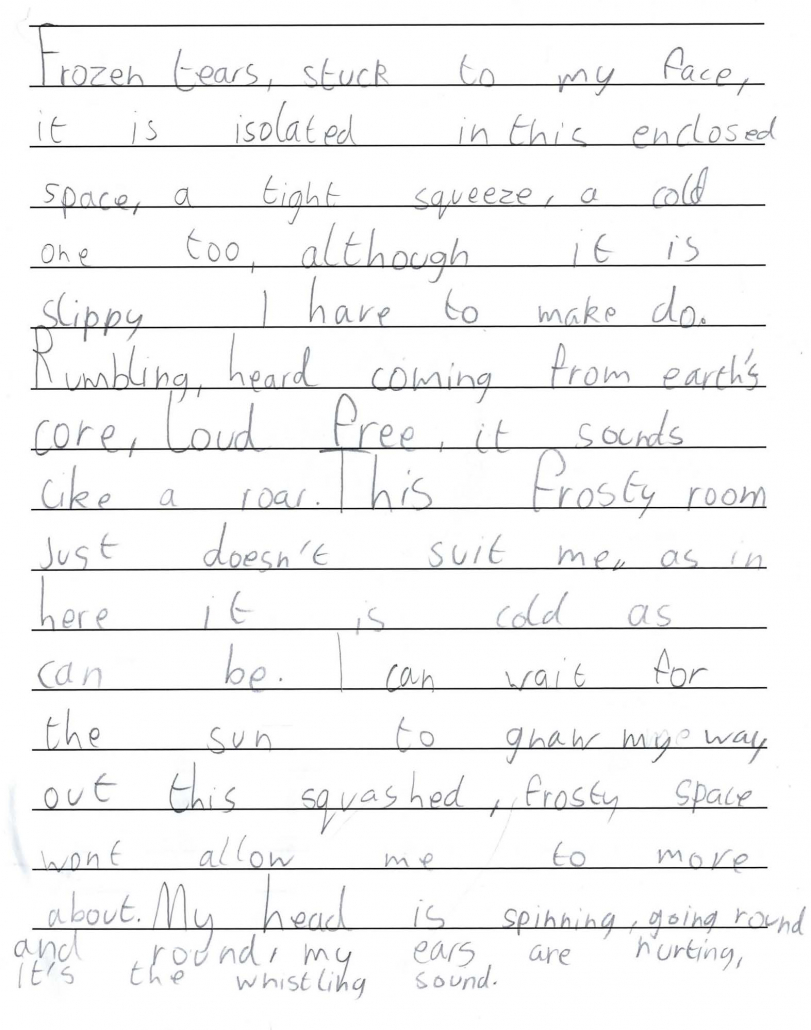 Frozen tears, stuck to my face,
it is isolated in this enclosed
space, a tight squeeze, a cold
one too, although it is
slippy I have to make do.
Rumbling, heard coming from earth's
core, loud free, it sounds
like a roar. This frosty room
Just doesn't suit me,, as in
here it is cold as
can be. I can wait for
the sun to gnaw my way
out this squashed, frosty space
wont allow me to more
about. My head is spinning, going round
and round, my ears are hurting,
it's the whistling sound.